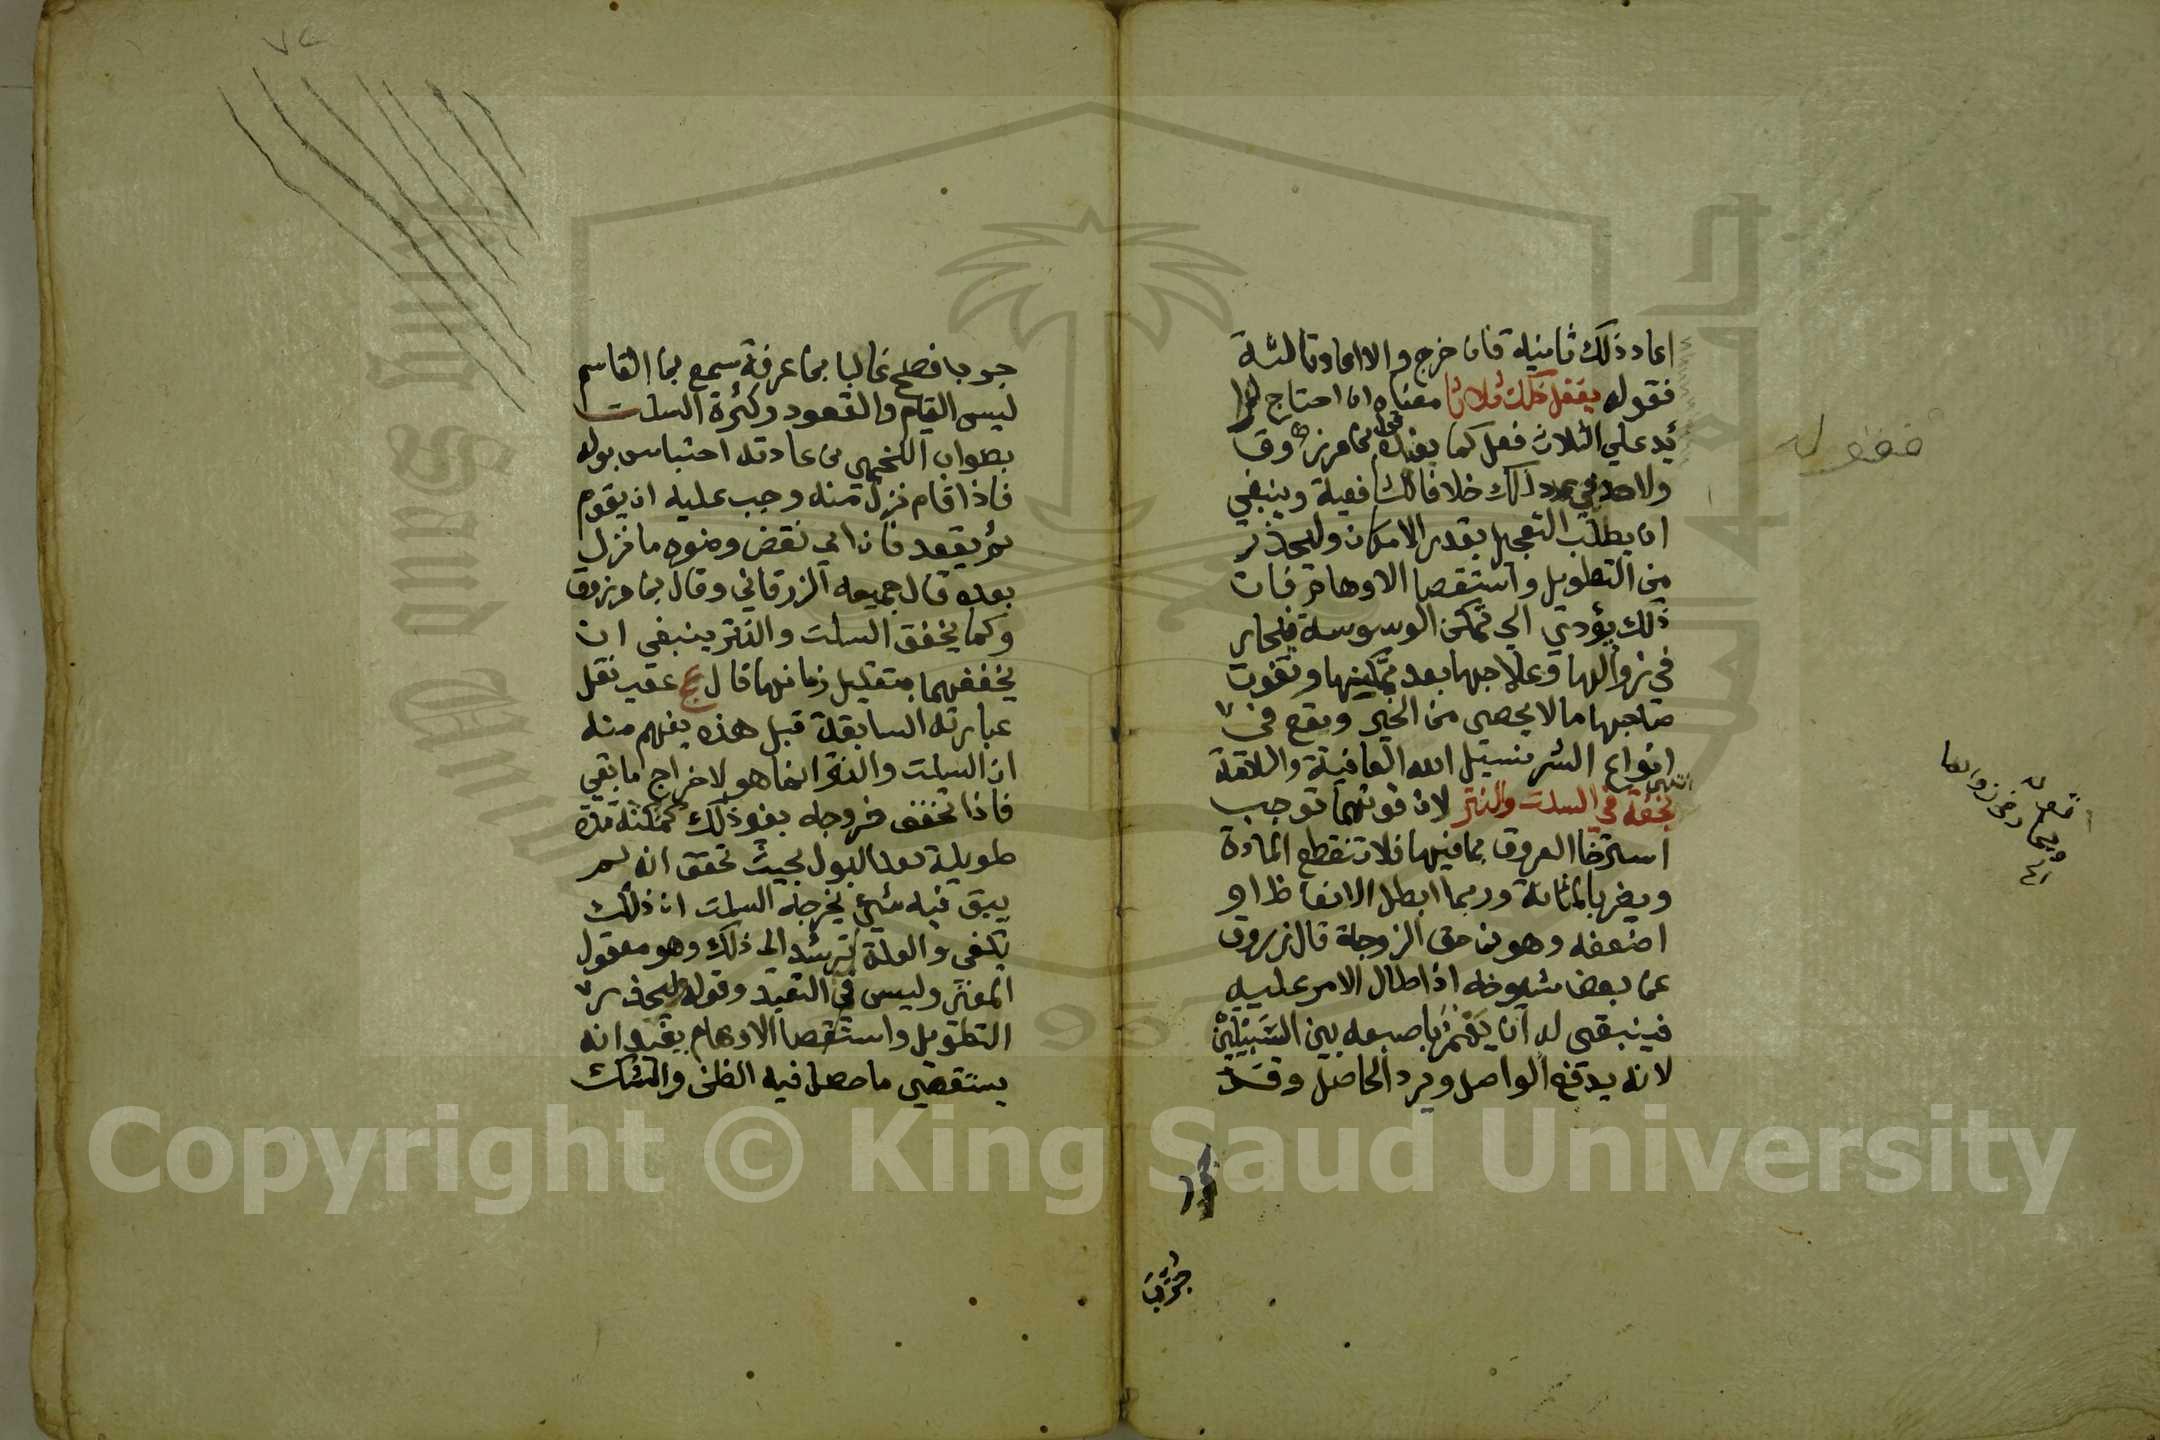 اعاد ذلك ثانية فان خرج والا اعاد ثالثة
فقوله يفعل ذلك ثلاثا معناه ان احتاج
يد علي الثلاث فعل كما يفيده
ولا حد في عدد ذلك خلافا للشافعية وينبغي
ان يطلب التعجيل بقدر الامكان وليحذر
من التطويل واستقصا الاوهام فان
ذلك يؤدي الي تمكن الوسوسة فيحار
في زوالها وعلاجها بعد تمكينها وتفوت
صاحبها ما لا يحصي من الخير ويقع في
انواع الشر نسيل الله العافية
بخفة في السلت والنتر لان قوتهما توجب
استرخا العروق بما فيها فلا تنقطع المادة
ويضر بالمثانة وربما ابطل الانعاظ او
اضعفه وهو من حق الزوجة قال زروق
عن بعض شيوخه اذا طال الامر عليه
فينبغي له ان يغمز باصبعه بين السبيلين
لانه يدفع الواصل ويرد الحاصل وقد
جرب
جرب فصح غالبا بن عرفة سمع بن القاسم
ليس القيام والقعود وكثرة السلت
بصواب اللخمي من عادته احتباس بوله
فاذا قام نزل منه وجب عليه ان يقوم
ثم يقعد فان ابي نقض وضوه ما نزل
بعده قال جميعه الزرقاني وقال بن مرزوق
وكما يخفف السلت والنتر ينبغي ان
يخففهما بتقليل زمانهما قال عج عقب نقل
عبارته السابقة قبل هذه يفهم منه
ان السلت والنتر انما هو لاخراج ما بقي
فاذا تخفف خروجه بغير ذلك كمكثه مدة
طويلة بعد البول بحيث تحقق انه لم
يبق فيه شي يخرجه السلت ان ذلك
يكفي والعلة ترشد الي ذلك وهو معقول
المعني وليس في التقيد وقوله وليحذر
التطويل واستقصا الاوهام يفيد انه
يستقصي ما حصل فيه الظن والشك
Copyright © King Saud University